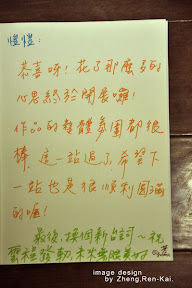 愷愷：
恭喜呀！花了那麼多的
心思終於開展囉！
作品的整體氛圍都很
棒，這一站過了，希望下
一站也是很順利圓滿
的喔！
最後，換個新台詞～祝
image design
by Zheng,Ren-Kai.